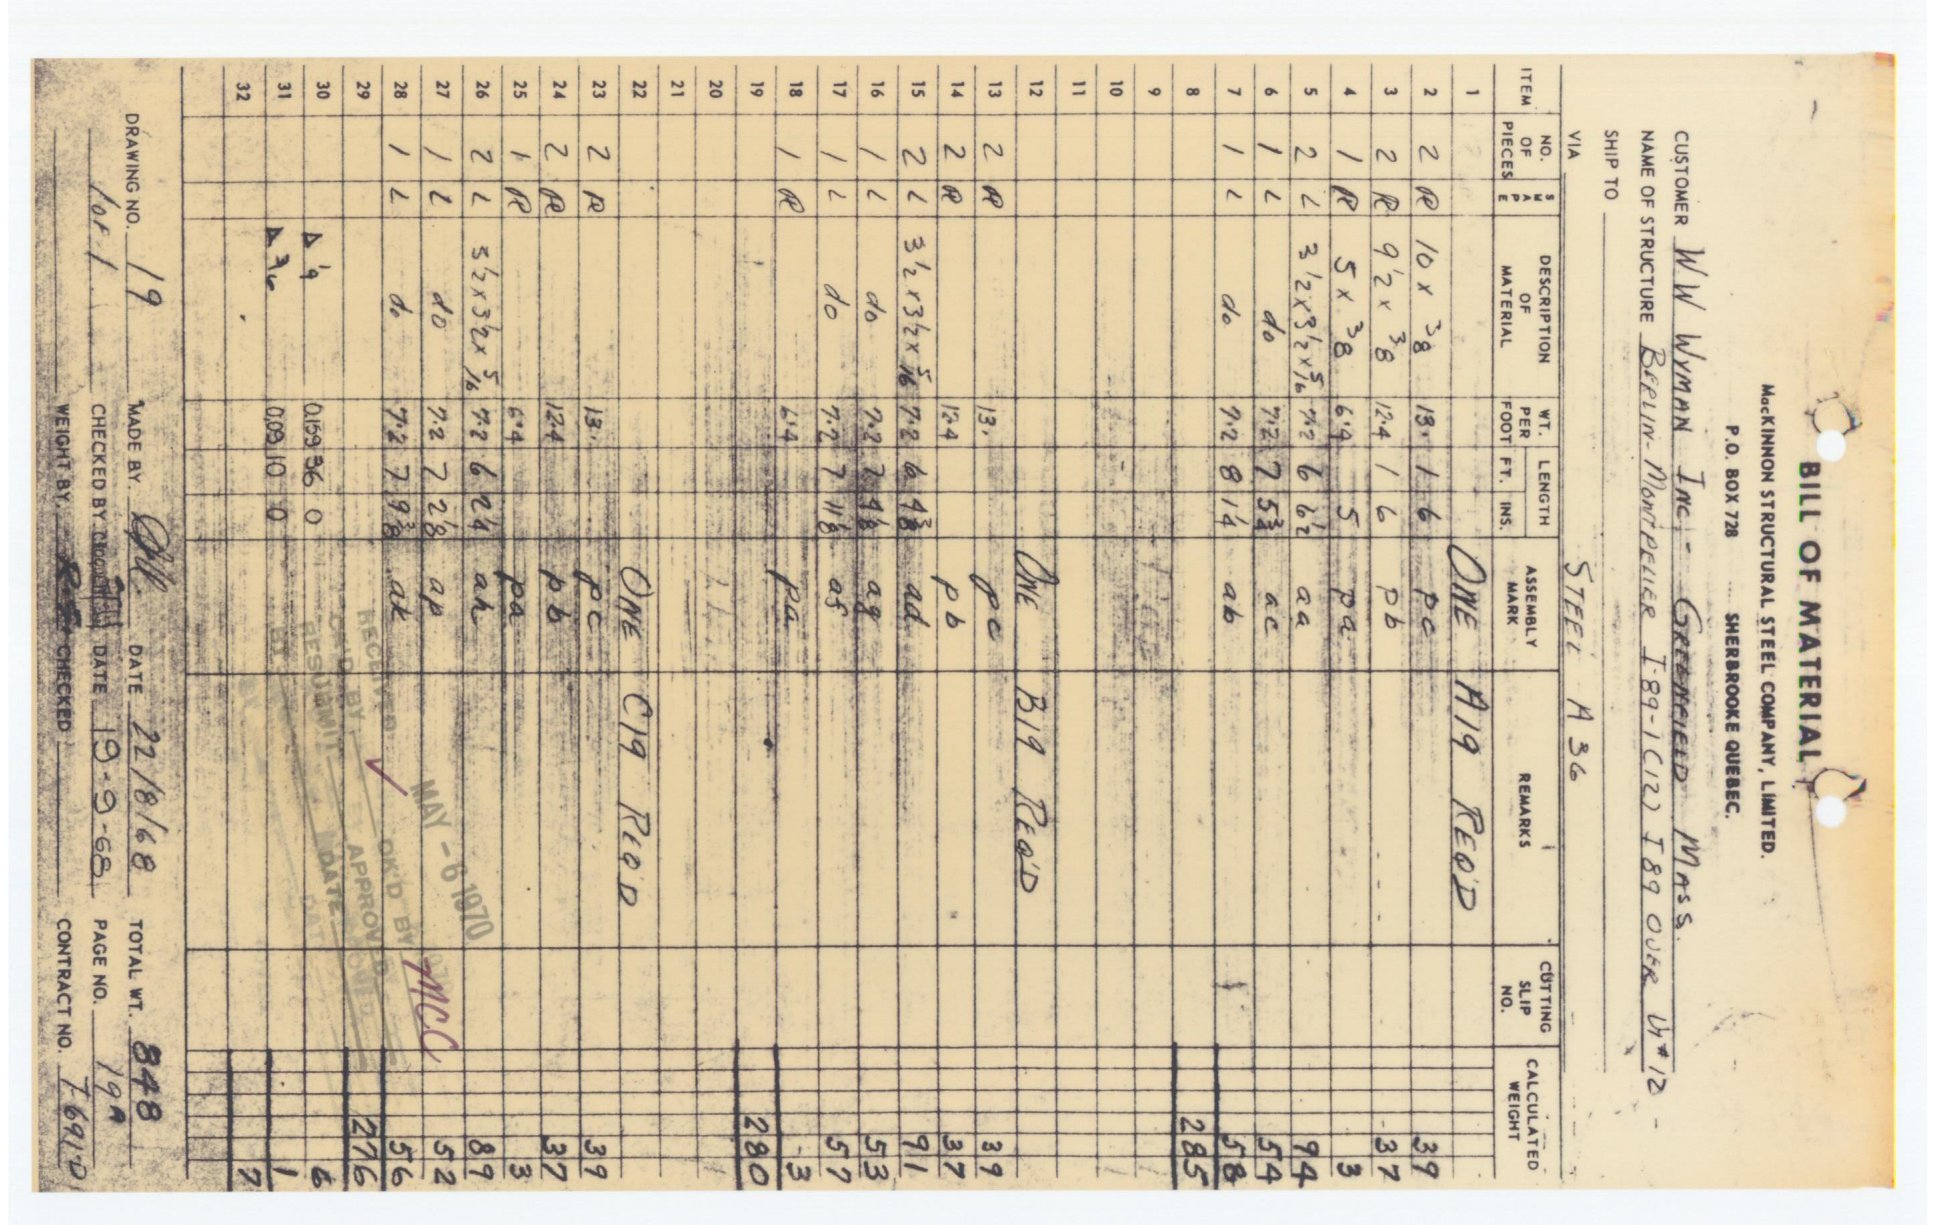 BILL OF MATERIAL
MacKINNON STRUCTURAL STEEL COMPANY, LIMITED.
P.O. BOX 728 SHERBROOKE QUEBEC.
CUSTOMER W W WYMAN INC. - GREENFIELD MASS.
NAME OF STRUCTURE BERLIN-MONTPELIER I-89-1(12) I 89 OVER Vt #12
SHIP TO
VIA STEEL A 36
ITEM NO. OF PIECES SHAPE DESCRIPTION OF MATERIAL WT. PER FOOT LENGTH FT. INS. ASSEMBLY MARK REMARKS CUTTING SLIP NO. CALCULATED WEIGHT
1 ONE A19 REQ'D
2 2 PL 10 x 3/8 13. 1 6 pc 39
3 2 PL 9 1/2 x 3/8 12.4 1 6 pb 37
4 1 PL 5 x 3/8 6.4 5 pa 3
5 2 L 3 1/2 x 3 1/2 x 5/16 7.2 6 6 1/2 aa 94
6 1 L do 7.2 7 5 3/4 ac 54
7 1 L do 7.2 8 1 1/4 ab 58
8 285
9
10
11
12 ONE B19 REQ'D
13 2 PL 13. pc 39
14 2 PL 12.4 pb 37
15 2 L 3 1/2 x 3 1/2 x 5/16 7.2 6 4 3/8 ad 91
16 1 L do 7.2 7 4 1/8 ag 53
17 1 L do 7.2 7 11 1/8 af 57
18 1 PL 6.4 pa 3
19 280
20
21
22 ONE C19 REQ'D
23 2 PL 13. pc 39
24 2 PL 12.4 pb 37
25 1 PL 6.4 pa 3
26 2 L 3 1/2 x 3 1/2 x 5/16 7.2 6 2 1/4 ah 89
27 1 L do 7.2 7 2 1/8 ap 52
28 1 L do 7.2 7 9 3/8 ak 56
29 276
30 0.159 36 0 6
31 3/16 0.09 10 0 1
32 7
MAY - 6 1970
RECEIVED
OK'D BY MCC
CK'D BY APPROVED
RESUBMIT DATE
DRAWING NO. 19 MADE BY DATE 22/8/68 TOTAL WT. 848
1 of 1 CHECKED BY DATE 19-9-68 PAGE NO. 19A
WEIGHT BY CHECKED CONTRACT NO. T-691-D